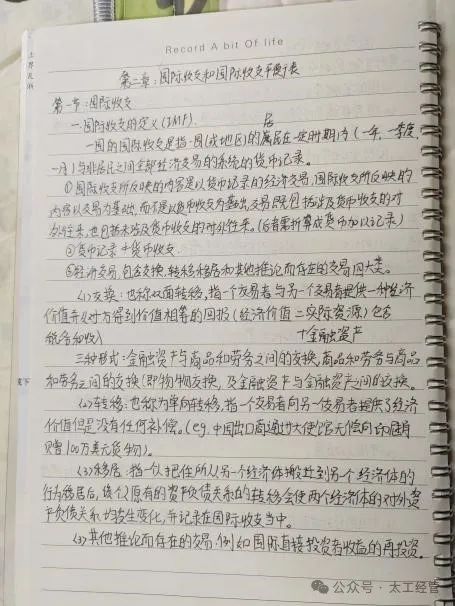 Record A bit Of life
第二章:国际收支和国际收支平衡表
第一节:国际收支
一.国际收支的定义(IMF).
居
一国的国际收支是指一国(或地区)的居民在一定时期内(一年,一季度,
一月)与非居民之间全部经济交易的系统的货币记录。
①国际收支所反映的内容是以货币记录的经济交易,国际收支所反映的
内容以交易为基础,而不是以货币收支为基础,交易既包括涉及货币收支的对
外往来,也包括未涉及货币收支的对外往来。(后者需折算成货币加以记录)
②货币记录≠货币收支
③经济交易,包含交换,转移移居和其他推论而存在的交易四大类。
(1)交换:也称双面转移,指一个交易者与另一个交易者提供一种经济
价值并从对方得到价值相等的回报(经济价值=实际资源)包含
+金融资产
三种形式:金融资产与商品和劳务之间的交换,商品和劳务与商品
和劳务之间的交换(即物物交换,及金融资产与金融资产之间的交换。
(2)转移:也称为单向转移,指一个交易者向另一交易者提供了经济
价值但是没有任何补偿。(eg.中国出口商通过大使馆无偿向
赠100万美元货物)。
(3)移居:指一个把住所从另一个经济体搬迁到另一个经济体的
行为移居后,该个人原有的资产负债关系的转移会使两个经济体的对外资
产负债关系均发生变化,并记录在国际收支当中。
(3)其他推论而存在的交易.例如国际直接投资者收益的再投资。
公众号·太工经管